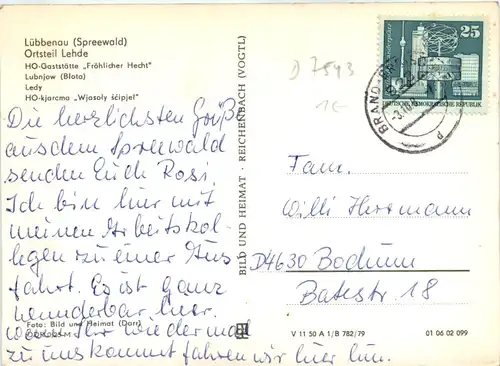 Lübbenau (Spreewald)
Ortsteil Lehde
HO-Gaststätte „Fröhlicher Hecht"
Lubnjow (Błota)
Ledy
HO-kjarcma „Wjasoły šćipjel"
Die herzlichsten Grüße
aus dem Spreewald
senden Euch Rosi
Ich bin hier mit
meinen Arbeitskol-
legen zu einer Aus
fahrt. Es ist ganz
wunderbar hier.
wenn Ihr wieder mal
zu uns kommt fahren wir hier hin.
Foto: Bild und Heimat (Darr)
BILD UND HEIMAT · REICHENBACH (VOGTL)
D 7543
1€
25
DEUTSCHE DEMOKRATISCHE REPUBLIK
BRAND-
Fam.
Willi Herrmann
D4630 Bochum
Batestr. 18
V 11 50 A 1/B 782/79
01 06 02 099